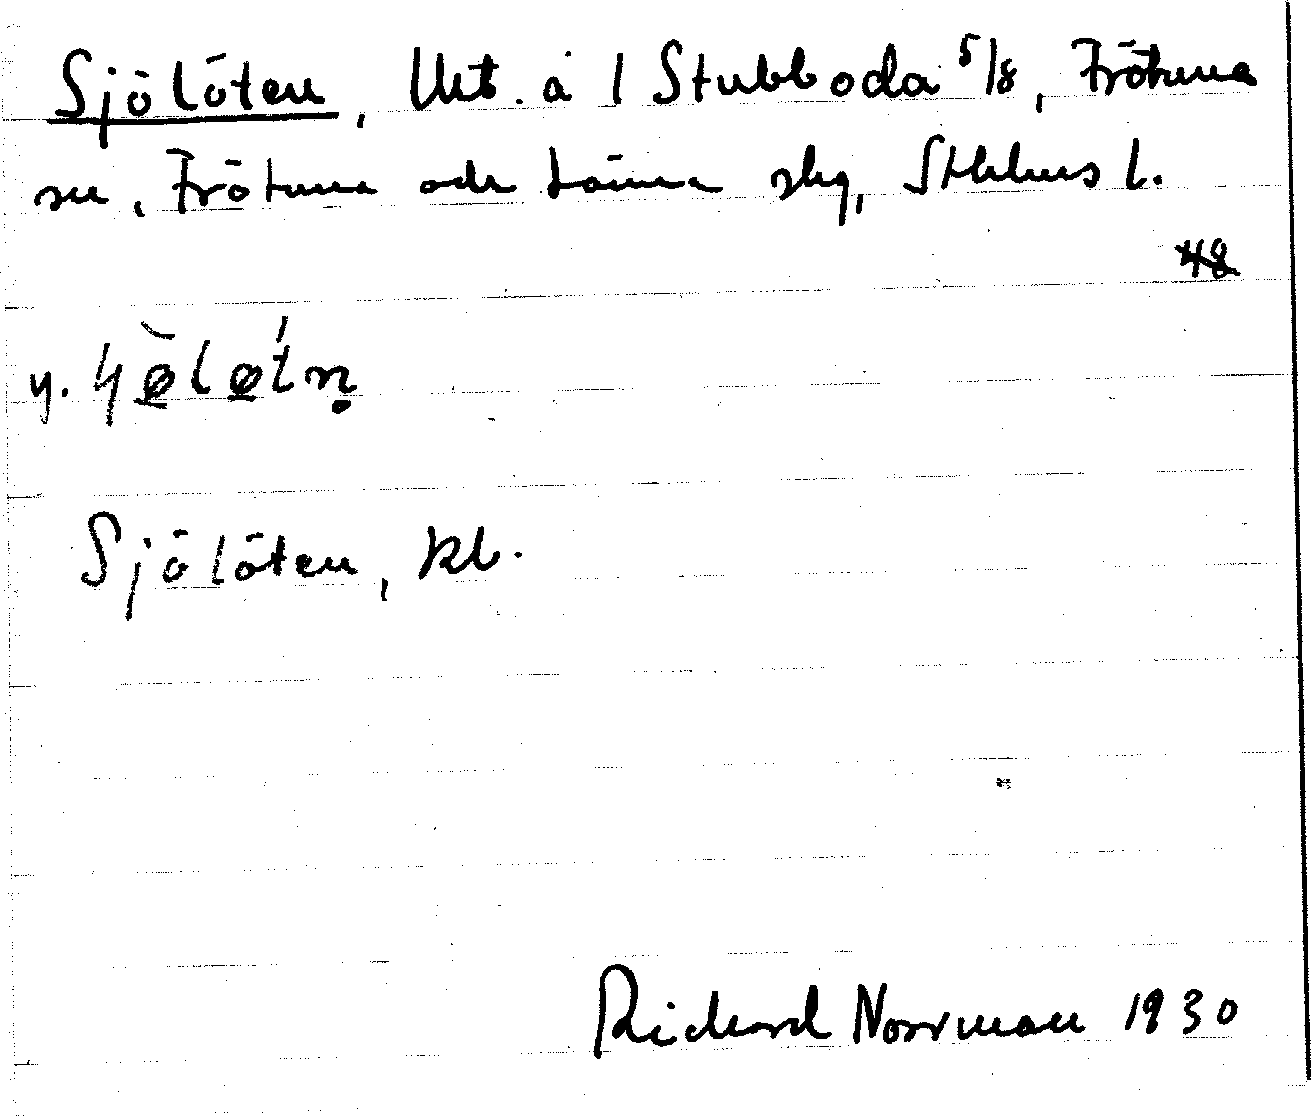 Sjölöten, Urt. å 1 Stubboda 5/8, Frötuna
sn, Frötuna och Länna skg, Sthlms l.
48
y.
Sjölöten, kl.
Richard Norrman 1930